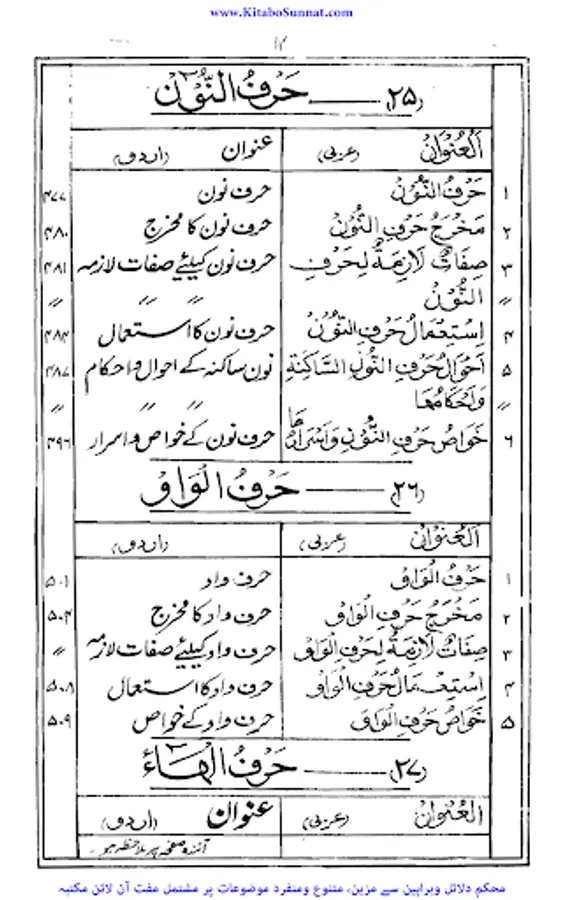 www.KitaboSunnat.com
۱۷
(۲۵) —— حَرْفُ النُّوْن
اَلْعُنْوَانُ (عربی) عنوان (اردو)
۱ حَرْفُ النُّوْنُ حرف نون ۴۷۷
۲ مَخْرَجُ حَرْفِ النُّوْنُ حرف نون کا مخرج ۴۸۰
۳ صِفَاتُ لَازِمَةُ لِحَرْفِ حرف نون کیلئے صفات لازمہ ۴۸۱
〃 النُّوْنُ 〃 〃 〃
۴ اِسْتِعْمَالُ حَرْفِ النُّوْنُ حرف نون کا استعمال ۴۸۴
۵ اَحْوَالُ حَرْفِ النُّوْنِ السَّاكِنَةِ نون ساکنہ کے احوال و احکام ۴۸۷
〃 وَاَحْكَامُهَا 〃 〃 〃
۶ خَوَاصُ حَرْفِ النُّوْنِ وَاَسْرَارُهَا حرف نون کے خواص و اسرار ۴۹۶
(۲۶) —— حَرْفُ الْوَاوِ
اَلْعُنْوَانُ (عربی) (اردو)
۱ حَرْفُ الْوَاوِ حرف واو ۵۰۱
۲ مَخْرَجُ حَرْفِ الْوَاوِ حرف واو کا مخرج ۵۰۴
۳ صِفَاتُ لَازِمَةُ لِحَرْفِ الْوَاوِ حرف واو کیلئے صفات لازمہ 〃
۴ اِسْتِعْمَالُ حَرْفِ الْوَاوِ حرف واو کا استعمال ۵۰۸
۵ خَوَاصُ حَرْفِ الْوَاوِ حرف واو کے خواص ۵۰۹
(۲۷) —— حَرْفُ الْهَاءِ
اَلْعُنْوَانُ (عربی) عنوان (اردو)
آئندہ صفحہ پر ملاحظہ ہو۔
محکم دلائل وبراہین سے مزین، متنوع ومنفرد موضوعات پر مشتمل مفت آن لائن مکتبہ